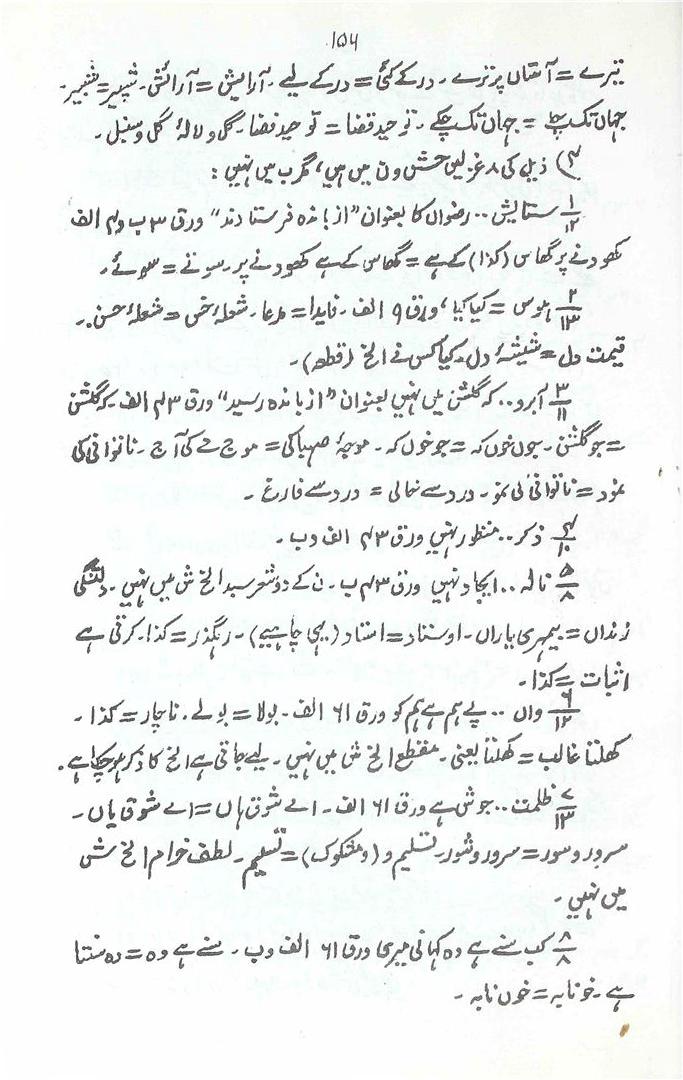 ۱۵۶
تیرے = آستاں پر ترے ۔ در کے کئی = در کے لیے ۔ آرایش = آرائش ۔ شپیر = شہپر ۔
جہاں تک چلے = جہاں تک چکے ۔ توحید قضا = توحید فضا ۔ گل و لالۂ گل و سنبل ۔
۳) ذیل کی ۸ غزلیں حش و ن میں ہیں، گرب میں نہیں :
۱/۱۲ ستایش ۔۔ رضواں کا بعنوان "از باندہ فرستادند" ورق ۳ ب و ۴ الف
کھودنے پر گھاس (کذا) کے ہے = گھاس کے ہے کھودنے پر ۔ سونے = سوئے ۔
۲/۱۳ ہوس = کیا کیا، ورق ۹ الف ۔ فایدا = مدعا ۔ شعلۂ خس = شعلۂ حسن ۔
قیمت دل = شیشۂ دل ۔ کیا کس نے الخ (قطع) ۔
۳/۱۱ آبرو ۔۔ کہ گلشن میں نہیں بعنوان "از باندہ رسید" ورق ۴۳ الف ۔ کہ گلشن
= جو گلشن ۔ ہوں خوں کہ = جو خوں کہ ۔ موجۂ صہبا کی = موج مے کی آج ۔ ناتوانی کی
نمود = ناتوانی کی نمو ۔ درد سے خالی = درد سے فارغ ۔
۴/۱۰ ذکر ۔۔ منظور نہیں ورق ۴۳ الف و ب ۔
۵/۸ نالہ ۔۔ ایجاد نہیں ورق ۴۳ ب ۔ ن کے دو شعر سبد الخ ش میں نہیں ۔ دلتنگی
زنداں = بیمہری یاراں ۔ اوستاد = استاد (یہی چاہیے) ۔ رہگذر = کذا ۔ کرتی ہے
اثبات = کذا ۔
۶/۱۲ واں ۔۔ پے ہم ہے ہم کو ورق ۶۱ الف ۔ بولا = بولے ۔ ناچار = کذا ۔
کھلتا غالب = کھلتا یعنی ۔ مقطع الخ ش میں نہیں ۔ لیے جاتی ہے الخ کا ذکر ہو چکا ہے ۔
۷/۱۳ ظلمت ۔۔ جوش ہے ورق ۶۱ الف ۔ اے شوق ہاں = اے شوق یاں ۔
سرور و سور = سرور و شور ۔ تسلیم و (و مشکوک) = تسلیم ۔ لطف خرام الخ ش
میں نہیں ۔
۸/۸ کب سنے ہے وہ کہانی میری ورق ۶۱ الف و ب ۔ سنے ہے وہ = وہ سنتا
ہے ۔ خونابہ = خون نابہ ۔